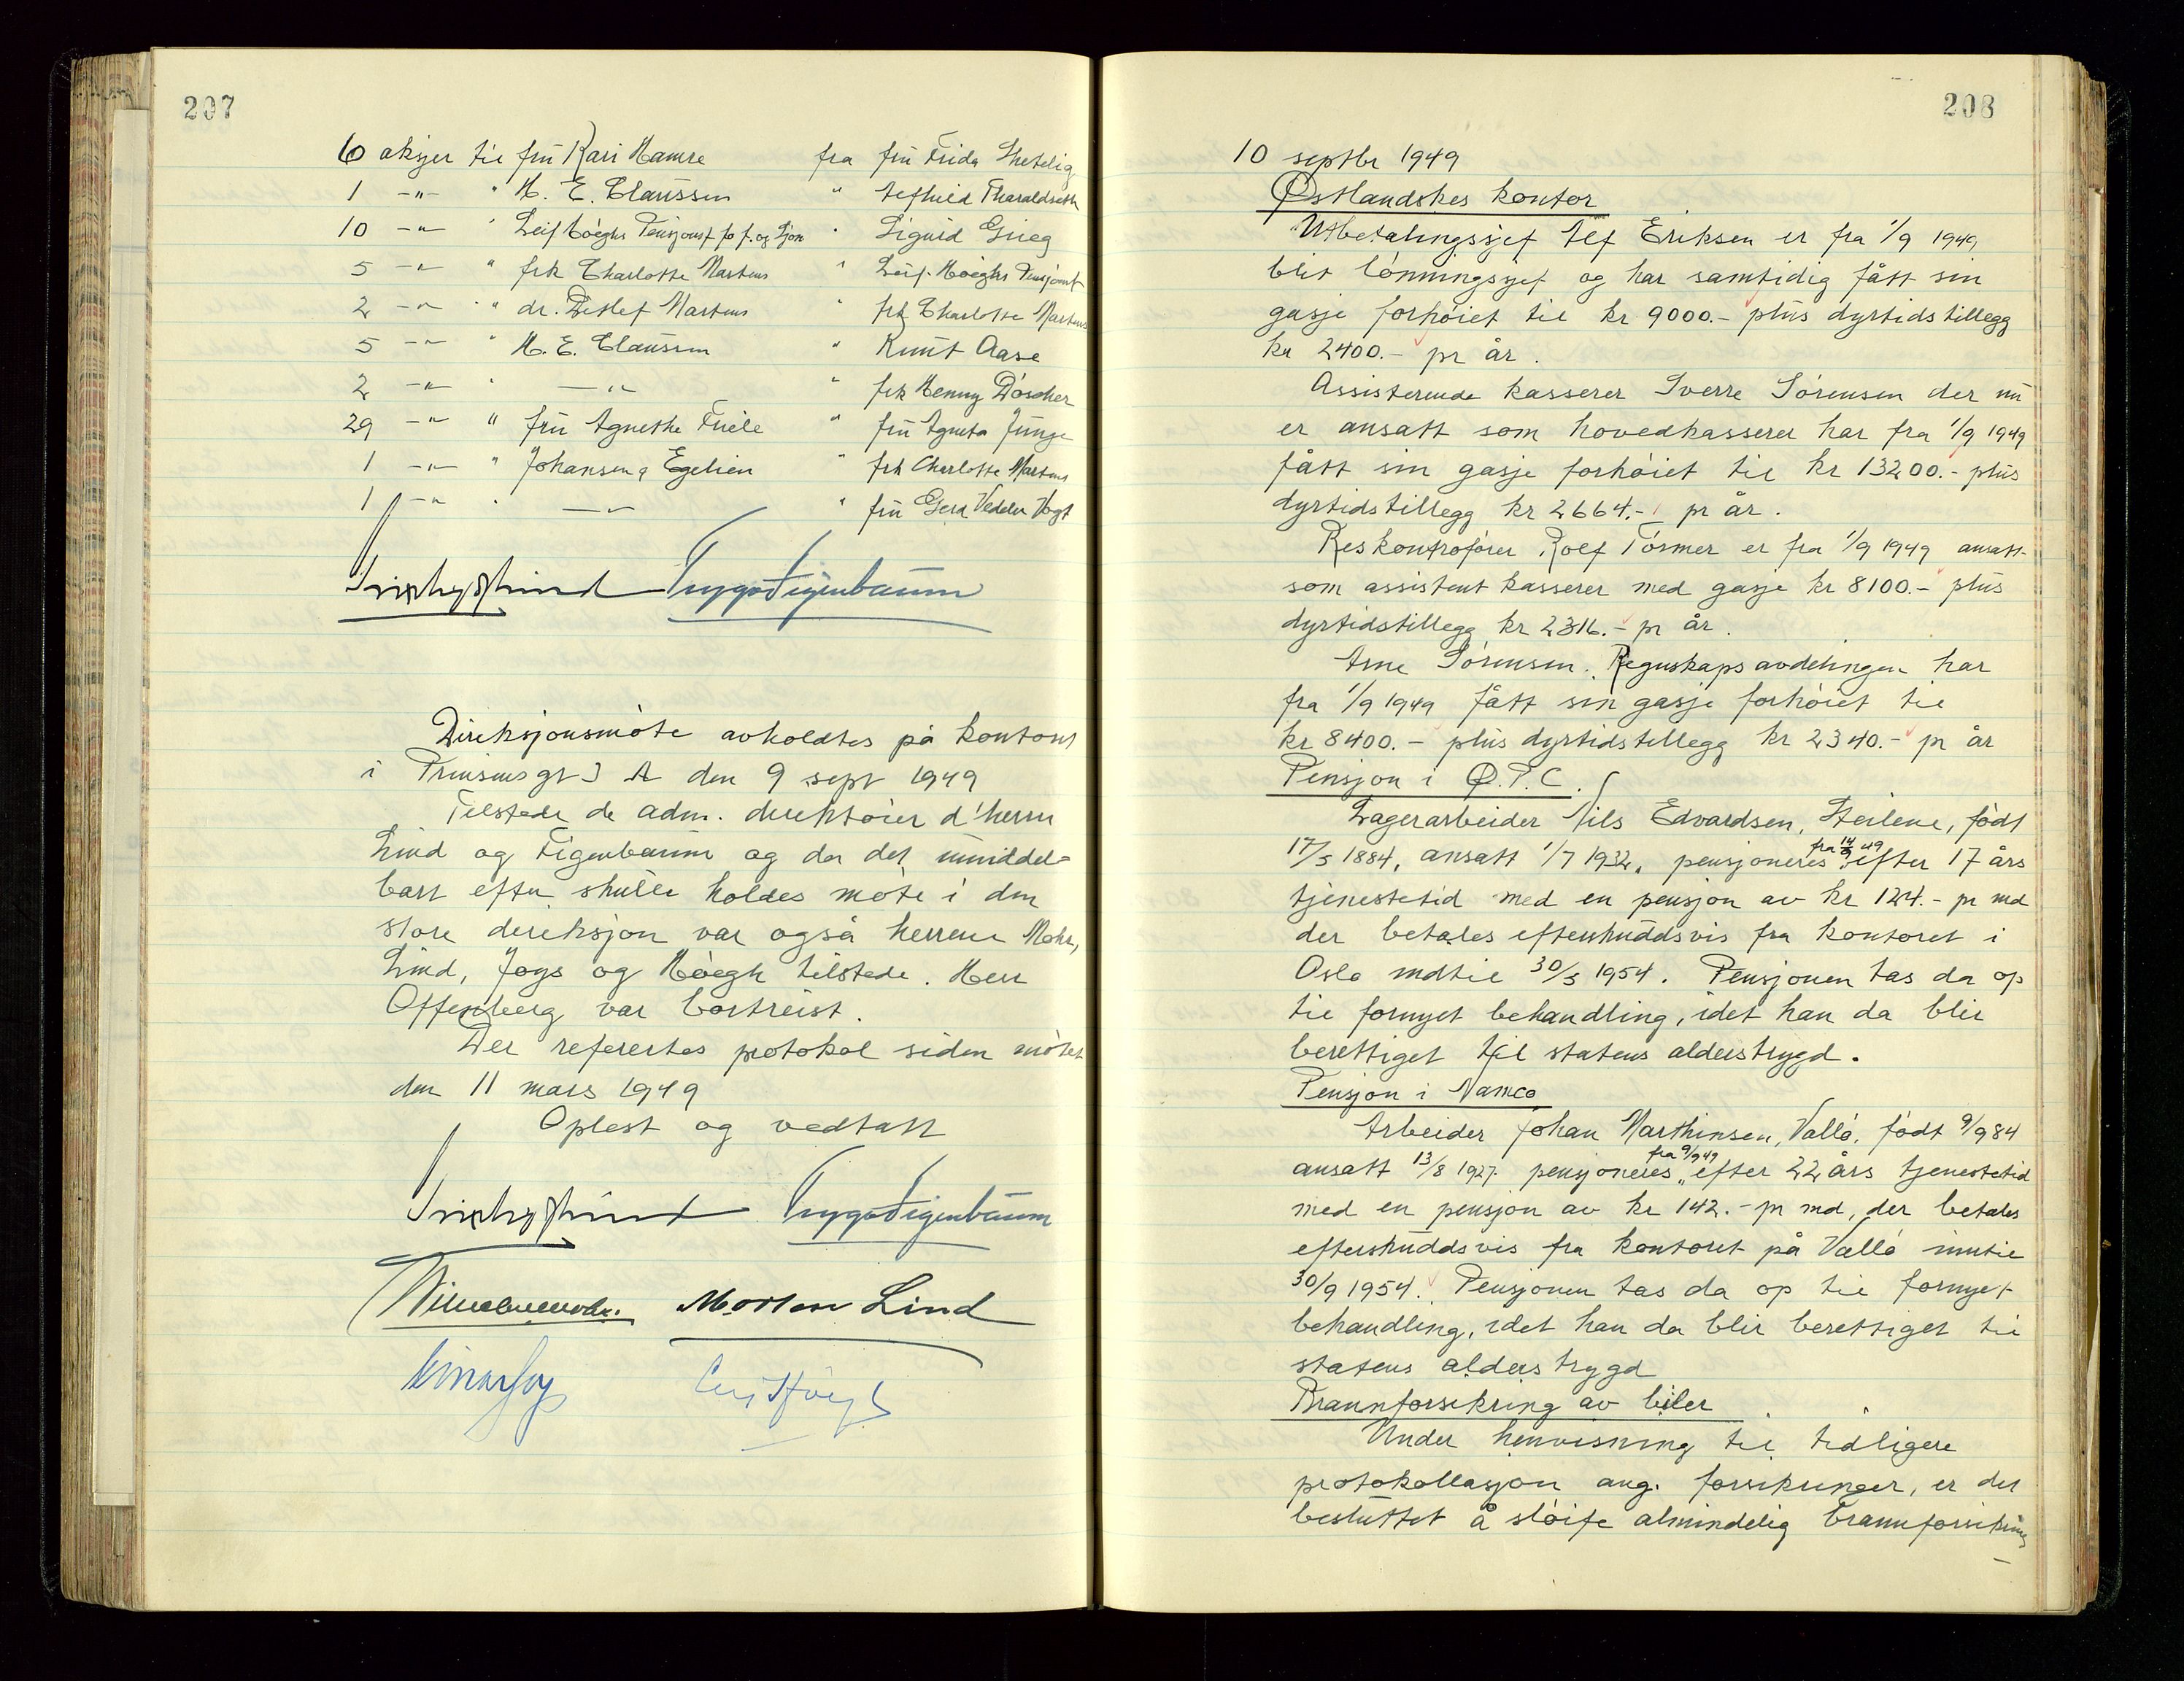 207
6 aksjer til frü Kari Hamre fra frü Frida Shetelig
1 -"- " H. E. Claüssen " Alfhild Tharaldseth
10 -"- " Leif Höeghs Pensjonsf. fo f. og Sjøm " Sigurd Grieg
5 -"- " frk Charlotte Martens " Leif Höeghs Pensjonsf
2 -"- " dr. Detlef Martens " frk Charlotte Martens
5 -"- " H. E. Claüssen " Knüt Aase
2 -"- " -"- " frk Henny Döscher
29 -"- " frü Agnethe Friele " frü Agneta Jünge
1 -"- " Johansen & Egelien " frk Charlotte Martens
1 -"- " -"- " frü Gerd Vedeler Vogt
Trygve Figenbaum
Direksjonsmöte avholdtes på kontoret
i Prinsensgt 3 A den 9 sept 1949
Tilstede de adm. direktöier d'herrer
Lind og Figenbaüm og da det ümiddel=
bart efter skülle holdes möte i den
store direksjon var også herrene Mohr,
Lind, Joys og Höegh tilstede. Herr
Offenberg var bortreist.
Der referertes protokol siden mötet
den 11 mars 1949
Oplest og vedtatt
Trygve Figenbaum
Morten Lind
Einar Joys Leif Höegh
208
10 septbr 1949
Østlandskes kontor
Utbetalingssjef Alf Eriksen er fra 1/9 1949
blit lönningssjef og har samtidig fått sin
gasje forhöiet til kr 9000.- plüs dyrtidstillegg
kr 2400.- pr år.
Assisterende kasserer Sverre Sörensen der nü
er ansatt som hovedkasserer har fra 1/9 1949
fått sin gasje forhöiet til kr 13200.- plüs
dyrtidstillegg kr 2664.- pr år.
Reskontroförer Rolf Törmer er fra 1/9 1949 ansatt
som assistent kasserer med gasje kr 8100.- plüs
dyrtidstillegg kr 2316.- pr år.
Arne Sörensen. Regnskapsavdelingen har
fra 1/9 1949 fått sin gasje forhöiet til
kr 8400.- plüs dyrtidstillegg kr 2340.- pr år
Pensjon i Ø.P.C.
Lagerarbeider Nils Edvardsen, Steilene, födt
17/5 1884, ansatt 1/7 1932, pensjoneres fra 14/9 49 efter 17 års
tjenestetid med en pensjon av kr 124.- pr md
der betales efterskuddsvis fra kontoret i
Oslo indtil 30/5 1954. Pensjonen tas da op
til fornyet behandling, idet han da blir
berettiget til statens alderstrygd.
Pensjon i Namco
Arbeider Johan Marthinsen, Vallö, födt 9/9 84
ansatt 13/8 1927. pensjoneres fra 9/9 49 efter 22 års tjenestetid
med en pensjon av kr 142.- pr md, der betales
efterskuddsvis fra kontoret på Vallö inntil
30/9 1954. Pensjonen tas da op til fornyet
behandling, idet han da blir berettiget til
statens alderstrygd
Brannforsikring av biler
Under henvisning til tidligere
protokollasjon ang. forsikringer, er det
besluttet å slöife almindelig brannforsikring